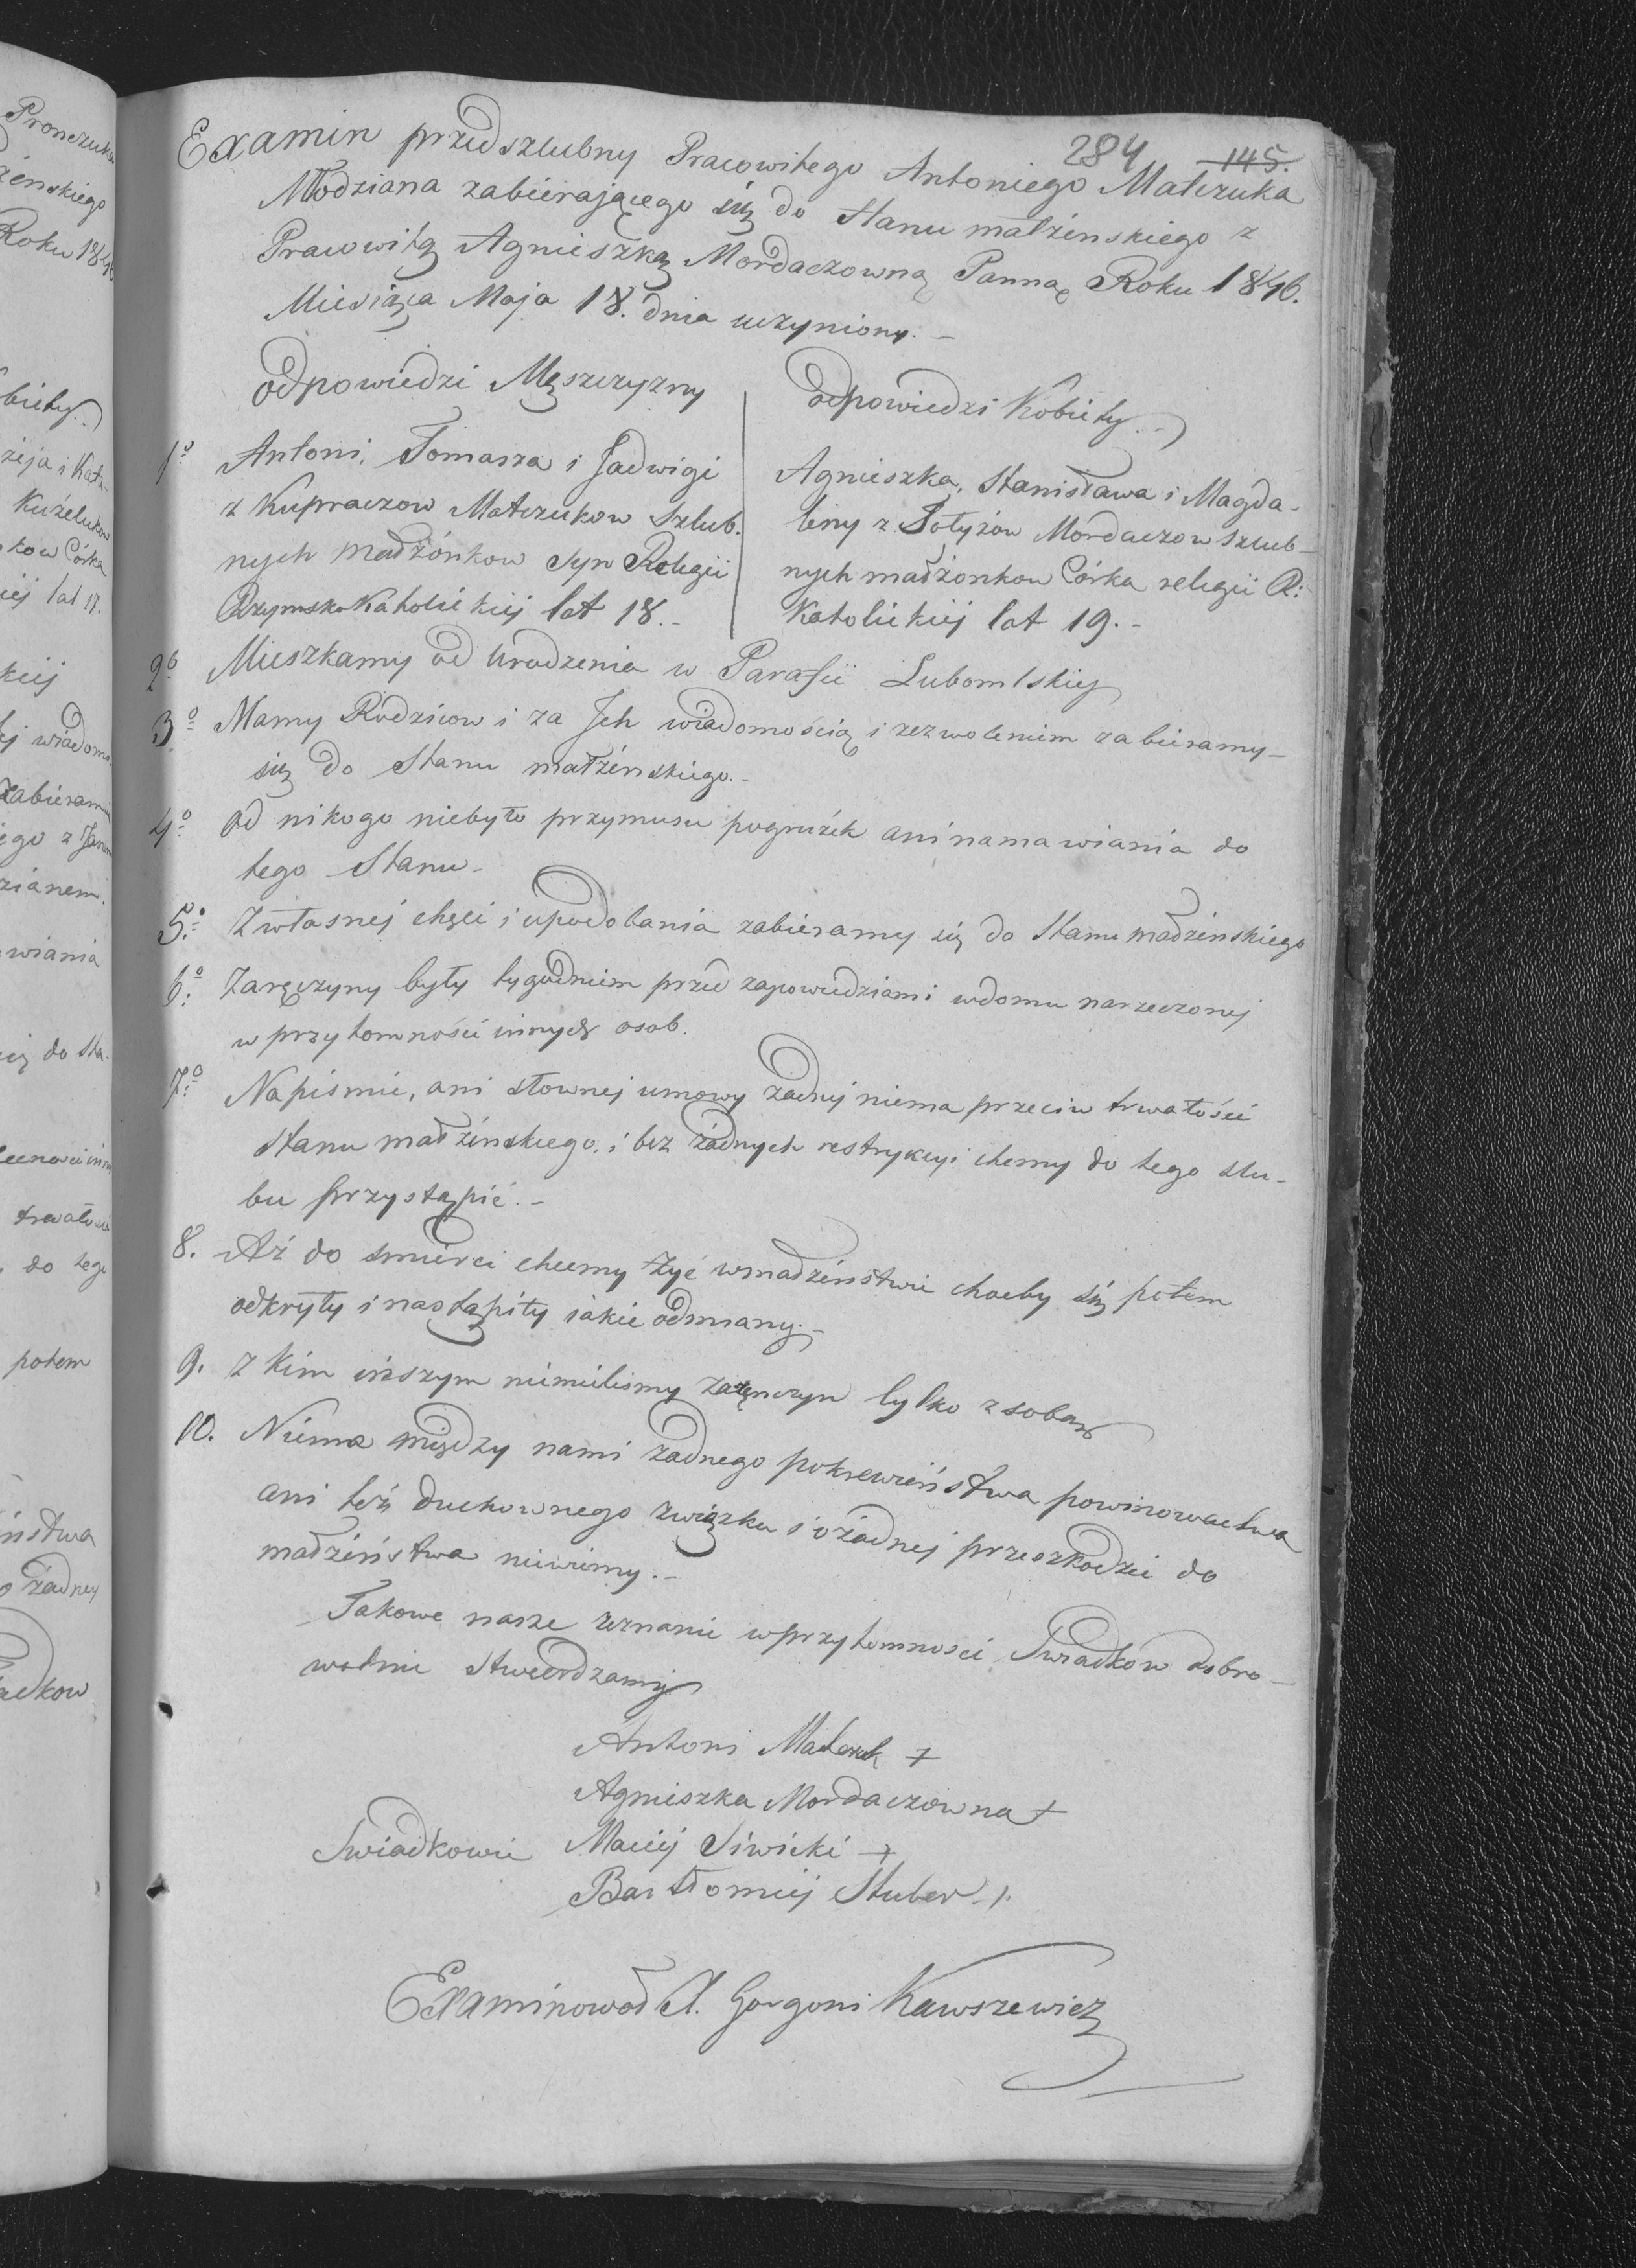 284 145.
Examin przedszlubny Pracowitego Antoniego Matczuka
Młodziana zabierającego się do Stanu małżenskiego z
Pracowitą Agnieszką Mordaczowną Panną Roku 1846.
Miesiąca Maja 18. dnia uczyniony. -
odpowiedzi Męszczyzny
1º Antoni, Tomasza i Jadwigi
z Kupraczow Matczukow Szlub-
nych małżónkow Syn Religii
Rzymsko Katholickiej lat 18. -
odpowiedzi Kobiety. -
Agnieszka, Stanisława i Magda-
leny z Sołyżow Mordaczow szlub-
nych małżonkow Córka religii R:
Katolickiej lat 19. -
2º Mieszkamy od Urodzenia w Parafii Lubomlskiej
3º Mamy Rodzicow i za Jch wiadomością i zezwoleniem zabieramy-
się do Stanu małżenskiego. -
4º od nikogo niebyło przymusu pogrużek ani namawiania do
tego Stanu -
5º Zwłasnej chęci i upodobania zabieramy się do Stanu małżenskiego
6º Zaręczyny były tygodniem przed zapowiedziami wdomu narzeczonej
w przytomności innych osob.
7º Napismie, ani słownej umowy żadnej niema przeciw trwałości
Stanu małżenskiego, i bez żadnych restrykcyi chcemy do tego szlu-
bu przystąpić. -
8. Aż do smierci chcemy żyć wmałżeństwie choćby się potem
odkryły i nastąpiły iakie odmiany. -
9. Z kim inszym niemieliśmy zaręnczyn tylko z sobą
10. Niema między nami żadnego pokrewieństwa powinowactwa
ani też duchownego związku i ożadnej przeszkodzie do
małżeństwa niewiemy. -
Takowe nasze zeznanie wprzytomnosci Swiadkow dobro-
wolnie stwierdzamy
Antoni Matczuk +
Agnieszka Mordaczowna +
Swiadkowie Maciej Siwicki +
Bartłomiej Stuber +
Examinował X. Gorgoni Kawszewicz